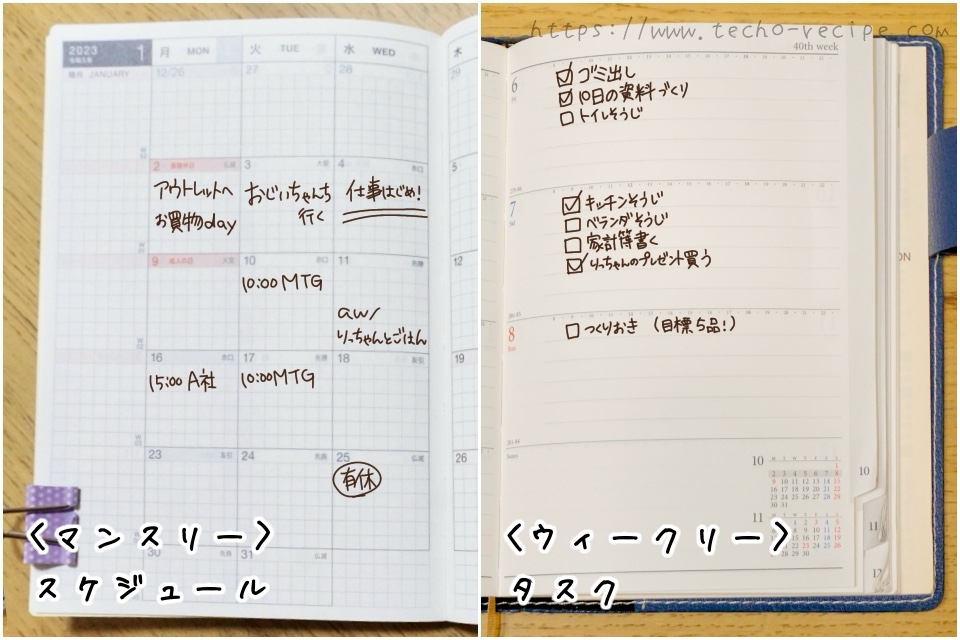 https://www.techo-recipe.com
2023 1 月 MON 火 TUE 水 WED 木
JANUARY 12/26 27 28 29
2 3 4 5
アウトレットへ
お買物day
おじいちゃんち
行く
仕事はじめ!
9 成人の日 10 11 12
10:00 MTG
aw/
りっちゃんとごはん
16 17 18 19
15:00 A社
10:00 MTG
23 24 25 26
有休
30 31
<マンスリー>
スケジュール
40th week
6
Fri
☑ ゴミ出し
☑ 10日の資料づくり
☐ トイレそうじ
7
Sat
☑ キッチンそうじ
☐ ベランダそうじ
☐ 家計簿書く
☑ りっちゃんのプレゼント買う
8
Sun
☐ つくりおき (目標5品!)
10
11
10
11
12
<ウィークリー>
タスク